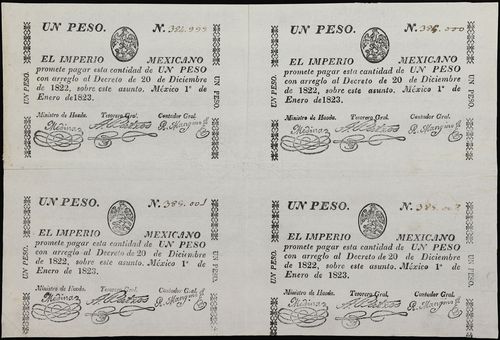 UN PESO. N.
EL IMPERIO MEXICANO
promete pagar esta cantidad de UN PESO
con arreglo al Decreto de 20 de Diciembre
de 1822, sobre este asunto. México 1º de
Enero de 1823.
Ministro de Hacda. Tesorero Gral. Contador Gral.
Medina
UN PESO.
UN PESO.
UN PESO. N.
EL IMPERIO MEXICANO
promete pagar esta cantidad de UN PESO
con arreglo al Decreto de 20 de Diciembre
de 1822, sobre este asunto. México 1º de
Enero de 1823.
Ministro de Hacda. Tesorero Gral. Contador Gral.
Medina
UN PESO.
UN PESO.
UN PESO. N. 385.001
EL IMPERIO MEXICANO
promete pagar esta cantidad de UN PESO
con arreglo al Decreto de 20 de Diciembre
de 1822, sobre este asunto. México 1º de
Enero de 1823.
Ministro de Hacda. Tesorero Gral. Contador Gral.
Medina
UN PESO.
UN PESO.
UN PESO. N.
EL IMPERIO MEXICANO
promete pagar esta cantidad de UN PESO
con arreglo al Decreto de 20 de Diciembre
de 1822, sobre este asunto. México 1º de
Enero de 1823.
Ministro de Hacda. Tesorero Gral. Contador Gral.
Medina
UN PESO.
UN PESO.